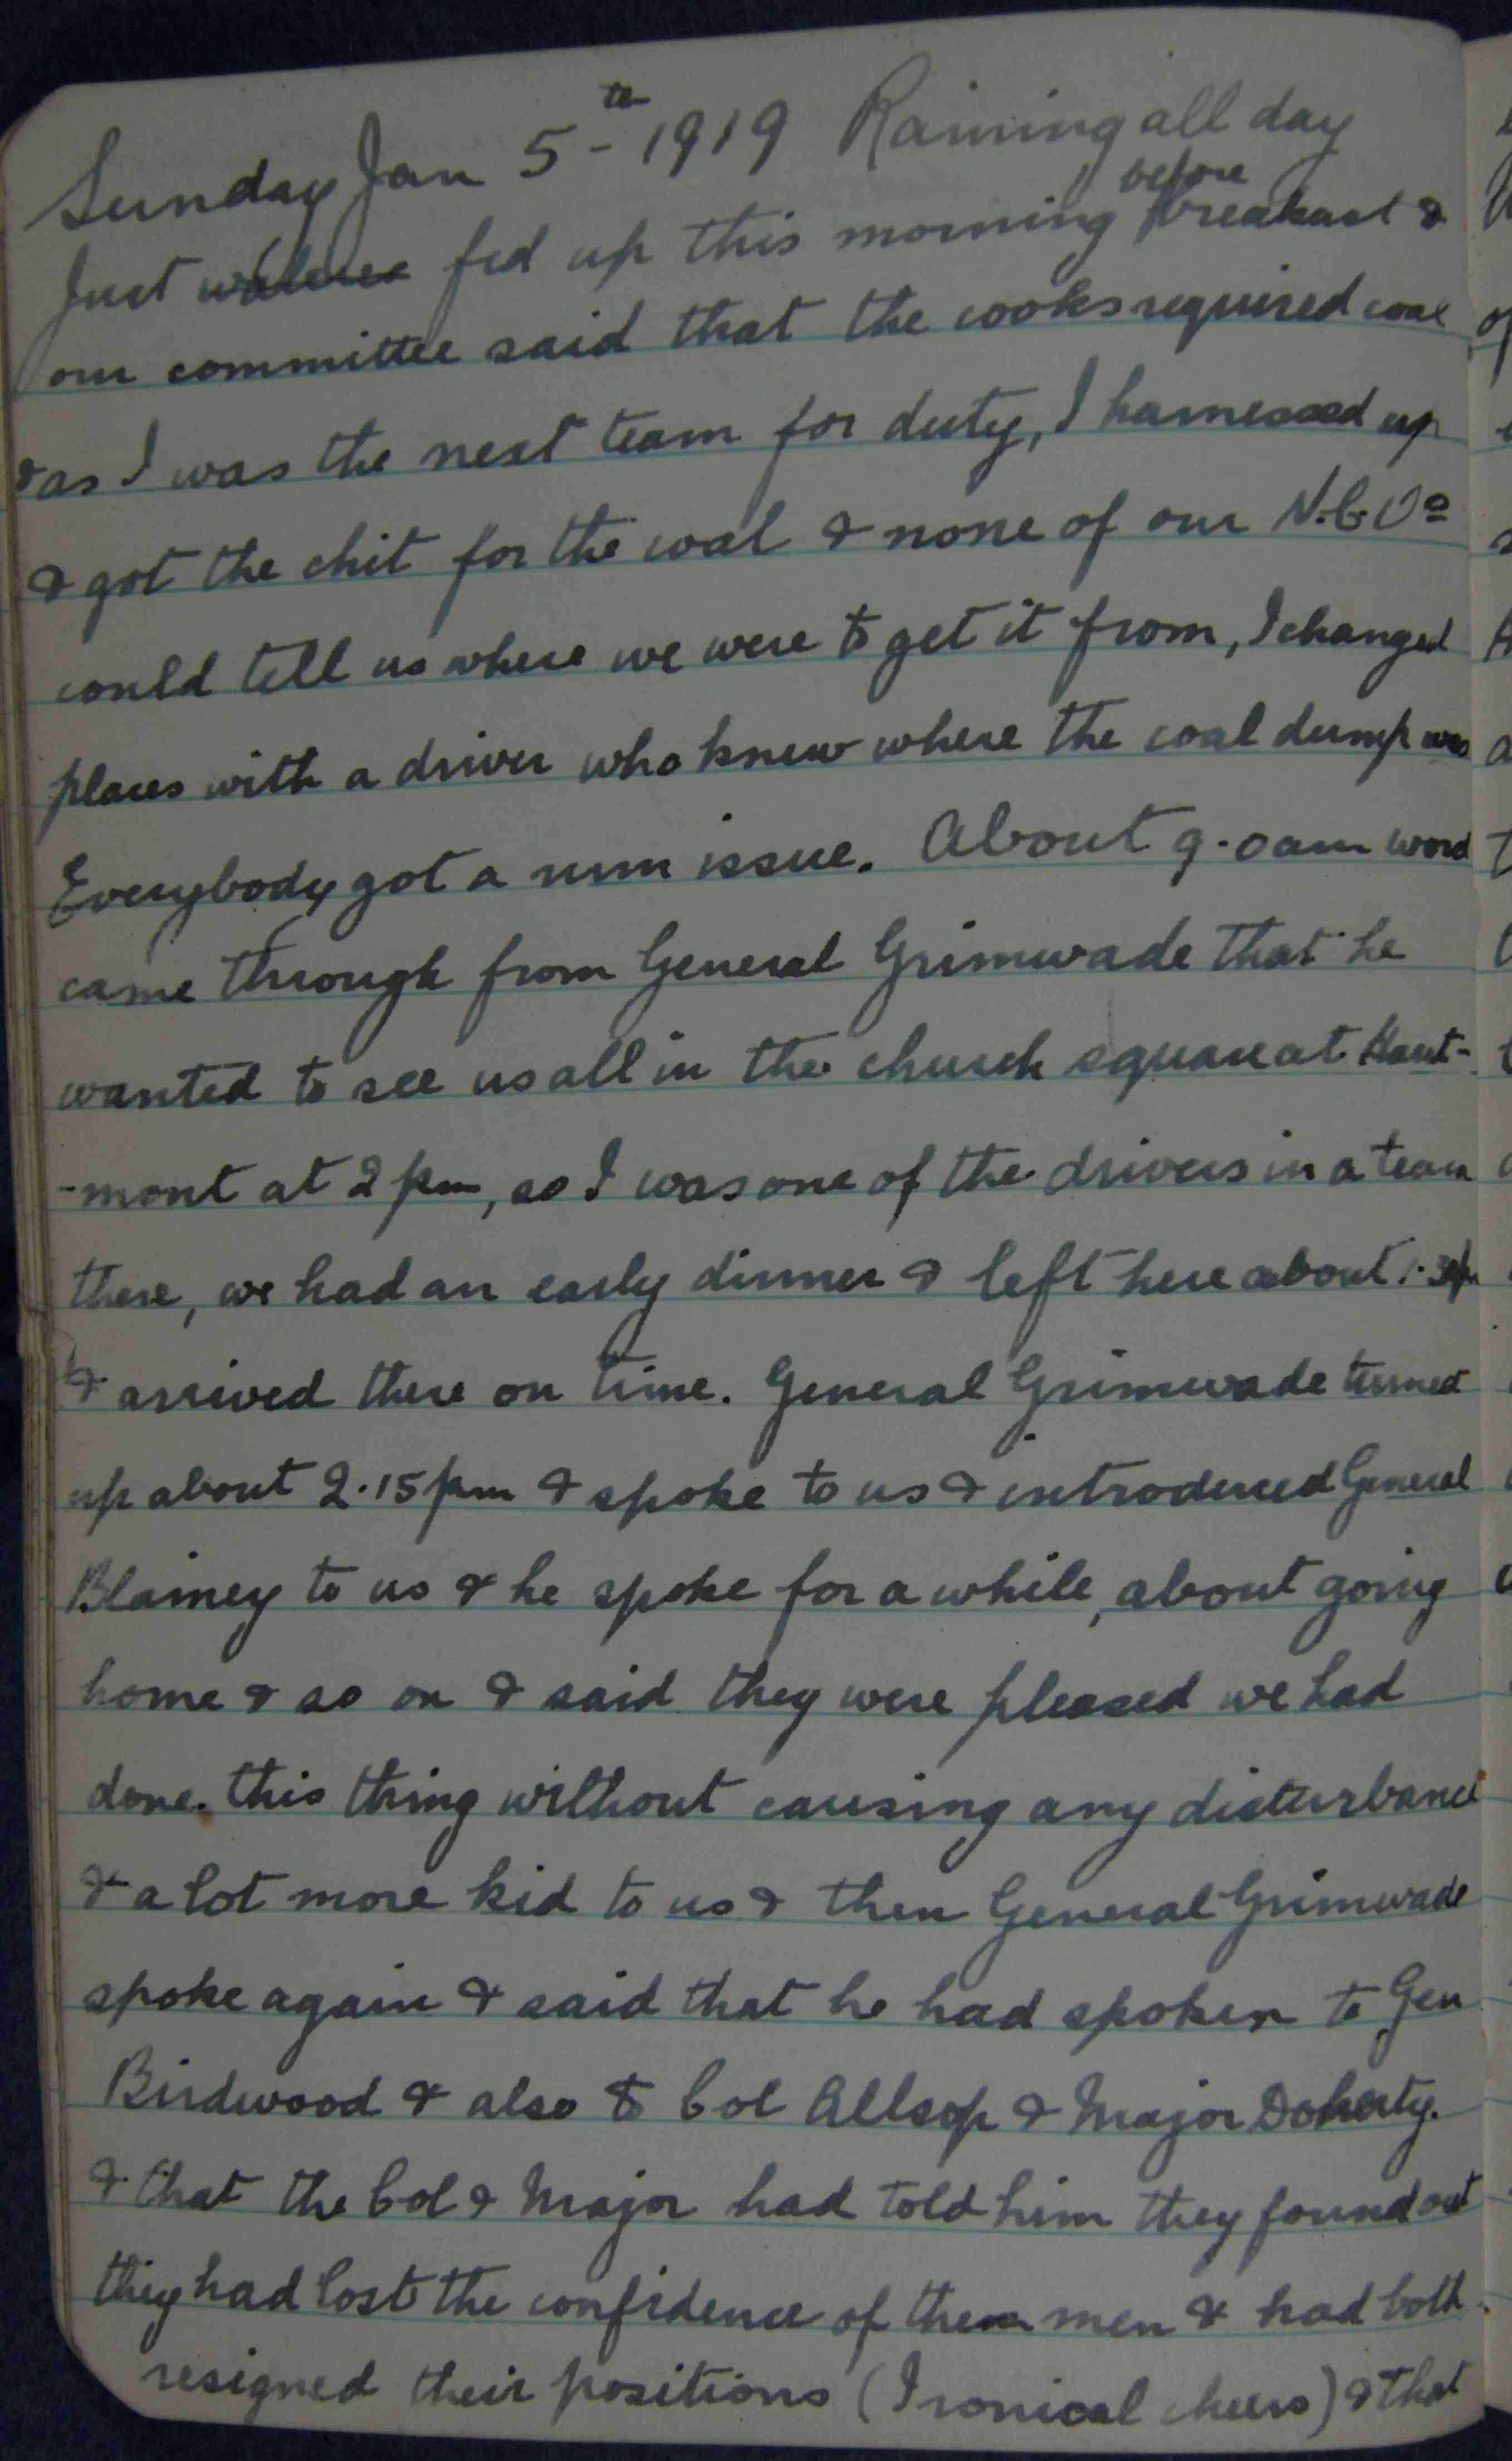 Sunday Jan 5th 1919 Raining all day
Just fed up this morning before breakast &
our committee said that the cooks required coal
& as I was the next team for duty, I harnessed up
& got the chit for the coal & none of our N.C.Os
could tell us where we were to get it from, I changed
places with a driver who knew where the coal dump was
Everybody got a rum issue. About 9.0am word
came through from General Grimwade that he
wanted to see us all in the church square at Haut-
-mont at 2 pm, so I was one of the drivers in a team
there, we had an early dinner & left here about 1.30pm
& arrived there on time. General Grimwade turned
up about 2.15 pm & spoke to us & introduced General
Blamey to us & he spoke for a while, about going
home & so on & said they were pleased we had
done this thing without causing any disturbance
& a lot more kid to us & then General Grimwade
spoke again & said that he had spoken to Gen
Birdwood & also to Col Allsop & Major Doherty.
& that the Col & Major had told him they found out
they had lost the confidence of their men & had both
resigned their positions (Ironical cheers) & that